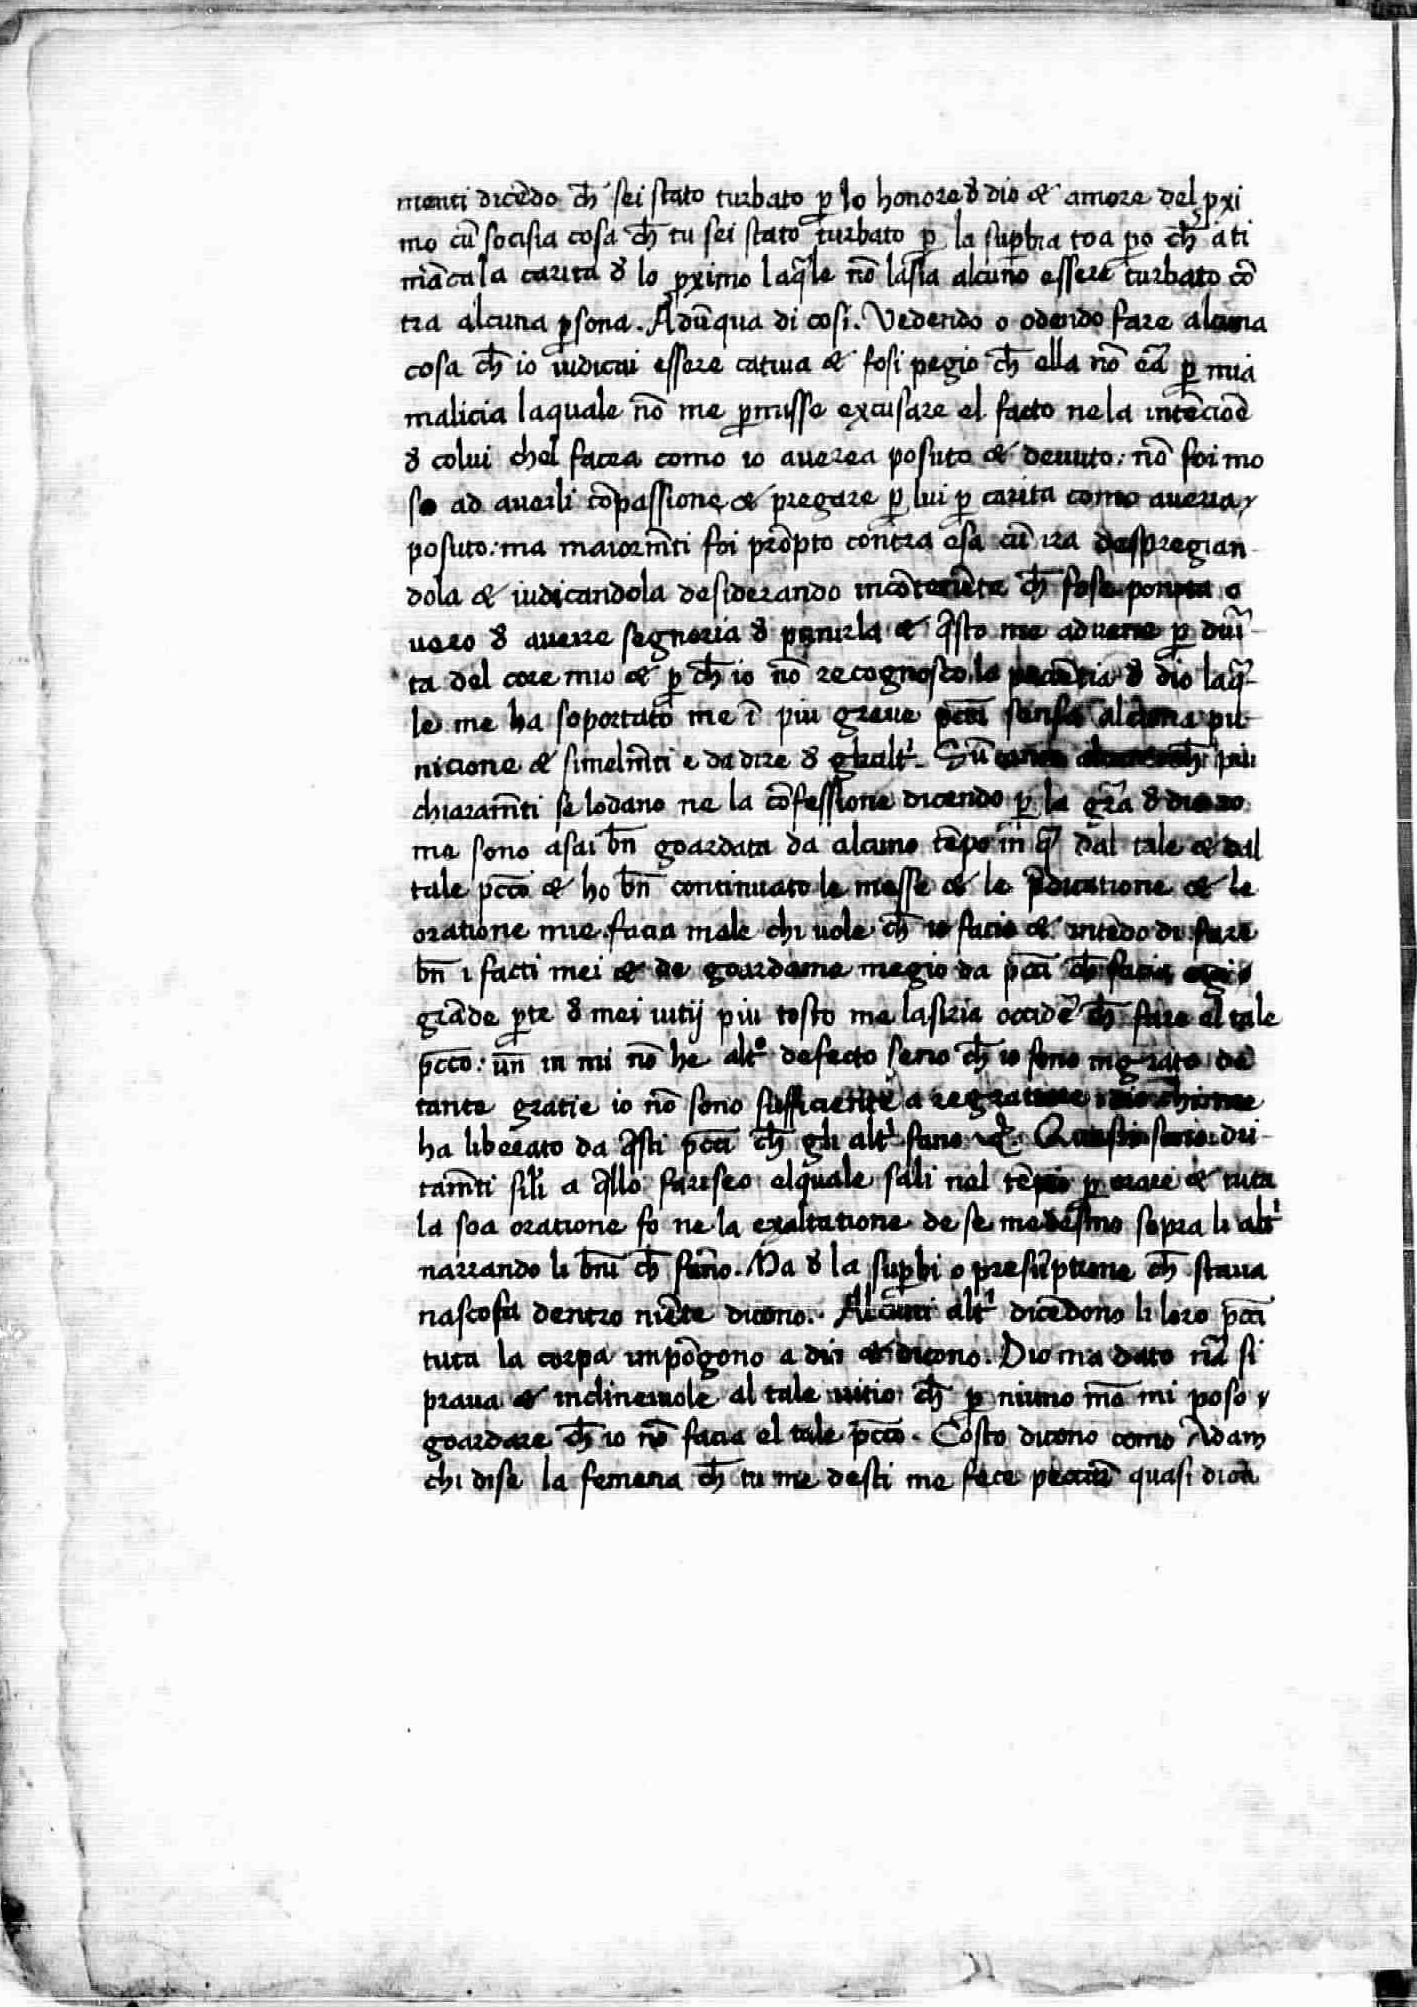 menti dicẽdo ch̃ sei stato turbato ꝑ lo honore ꝺ dio & amore del ꝓxi
mo cũ socisia cosa ch̃ tu sei stato turbato ꝑ la suꝑbia toa ꝑo ch̃ a ti
mãca la carita ꝺ lo ꝓximo laq̃le nõ lasia alcuno essere turbato cõ
tra alcuna ꝑsona. Adũqua di cosi. Vedendo o odendo fare alcuna
cosa ch̃ io iudicai essere catiua & fosi pegio ch̃ ella nõ eã ꝑ mia
malicia laquale nõ me ꝑmisse excusare el facto ne la intẽciõe
ꝺ colui chel facea como io auerea posuto & deuuto: nõ foi mo
so ad auerli cõpassione & pregare ꝑ lui ꝑ carita como aueria
posuto: ma maiorm̃ti foi prõpto contra esa cũ ira despregian
dola & iudicandola desiderando incõtenẽte ch̃ fose ponita o
uero ꝺ auere segnoria ꝺ punirla & q̃sto me aduene ꝑ duri
ta del core mio & ꝑ ch̃ io nõ recognosco la paciẽtia ꝺ dio laq̃
le me ha soportato me ĩ piu greue pcc̃ti sensa alcuna pu
nicione & simelm̃ti e da dire ꝺ gli alt'. Sũ piu
chiaram̃ti se lodano ne la cõfessione dicendo ꝑ la gr̃a ꝺ dio io
me sono asai bñ goardata da alcuno tẽpo in q̃ dal tale & dal
tale pcc̃o & ho bñ continuato le messe & le p̃dicatione & le
oratione mie. facia male chi uole ch̃ io facio & intẽdo di fare
bñ i facti mei & de goardame megio da pcc̃i ch̃ facia
grãde ꝑte ꝺ mei uitij piu tosto me lasiria occidẽ ch̃ fare el tale
pcc̃o: uñ in mi nõ he alt° defecto seno ch̃ io sono ingrato de
tante gratie io nõ sono sufficiente a regratiare dio ch̃ me
ha liberato da q̃sti pcc̃i ch̃ gli alt' fano. Questi sono dri
tam̃ti sili a q̃llo fariseo elquale sali nel tẽpio ꝑ orare & tuta
la soa oratione fo ne la exaltatione de se medesmo sopra li alt'
narrando li bñi ch̃ fano. Ma ꝺ la suꝑbi o presũptione ch̃ staua
nascosa dentro niẽte dicono. Alcuni alt' dicẽdono li loro pcc̃i
tuta la corpa impõgono a dio & dicono. Dio ma dato nã si
praua & inclineuole al tale uitio ch̃ ꝑ niuno mõ mi poso
goardare ch̃ io nõ facia el tale pcc̃o. Costo dicono como Adam
chi dise la femena ch̃ tu me desti me fece peccare quasi dica